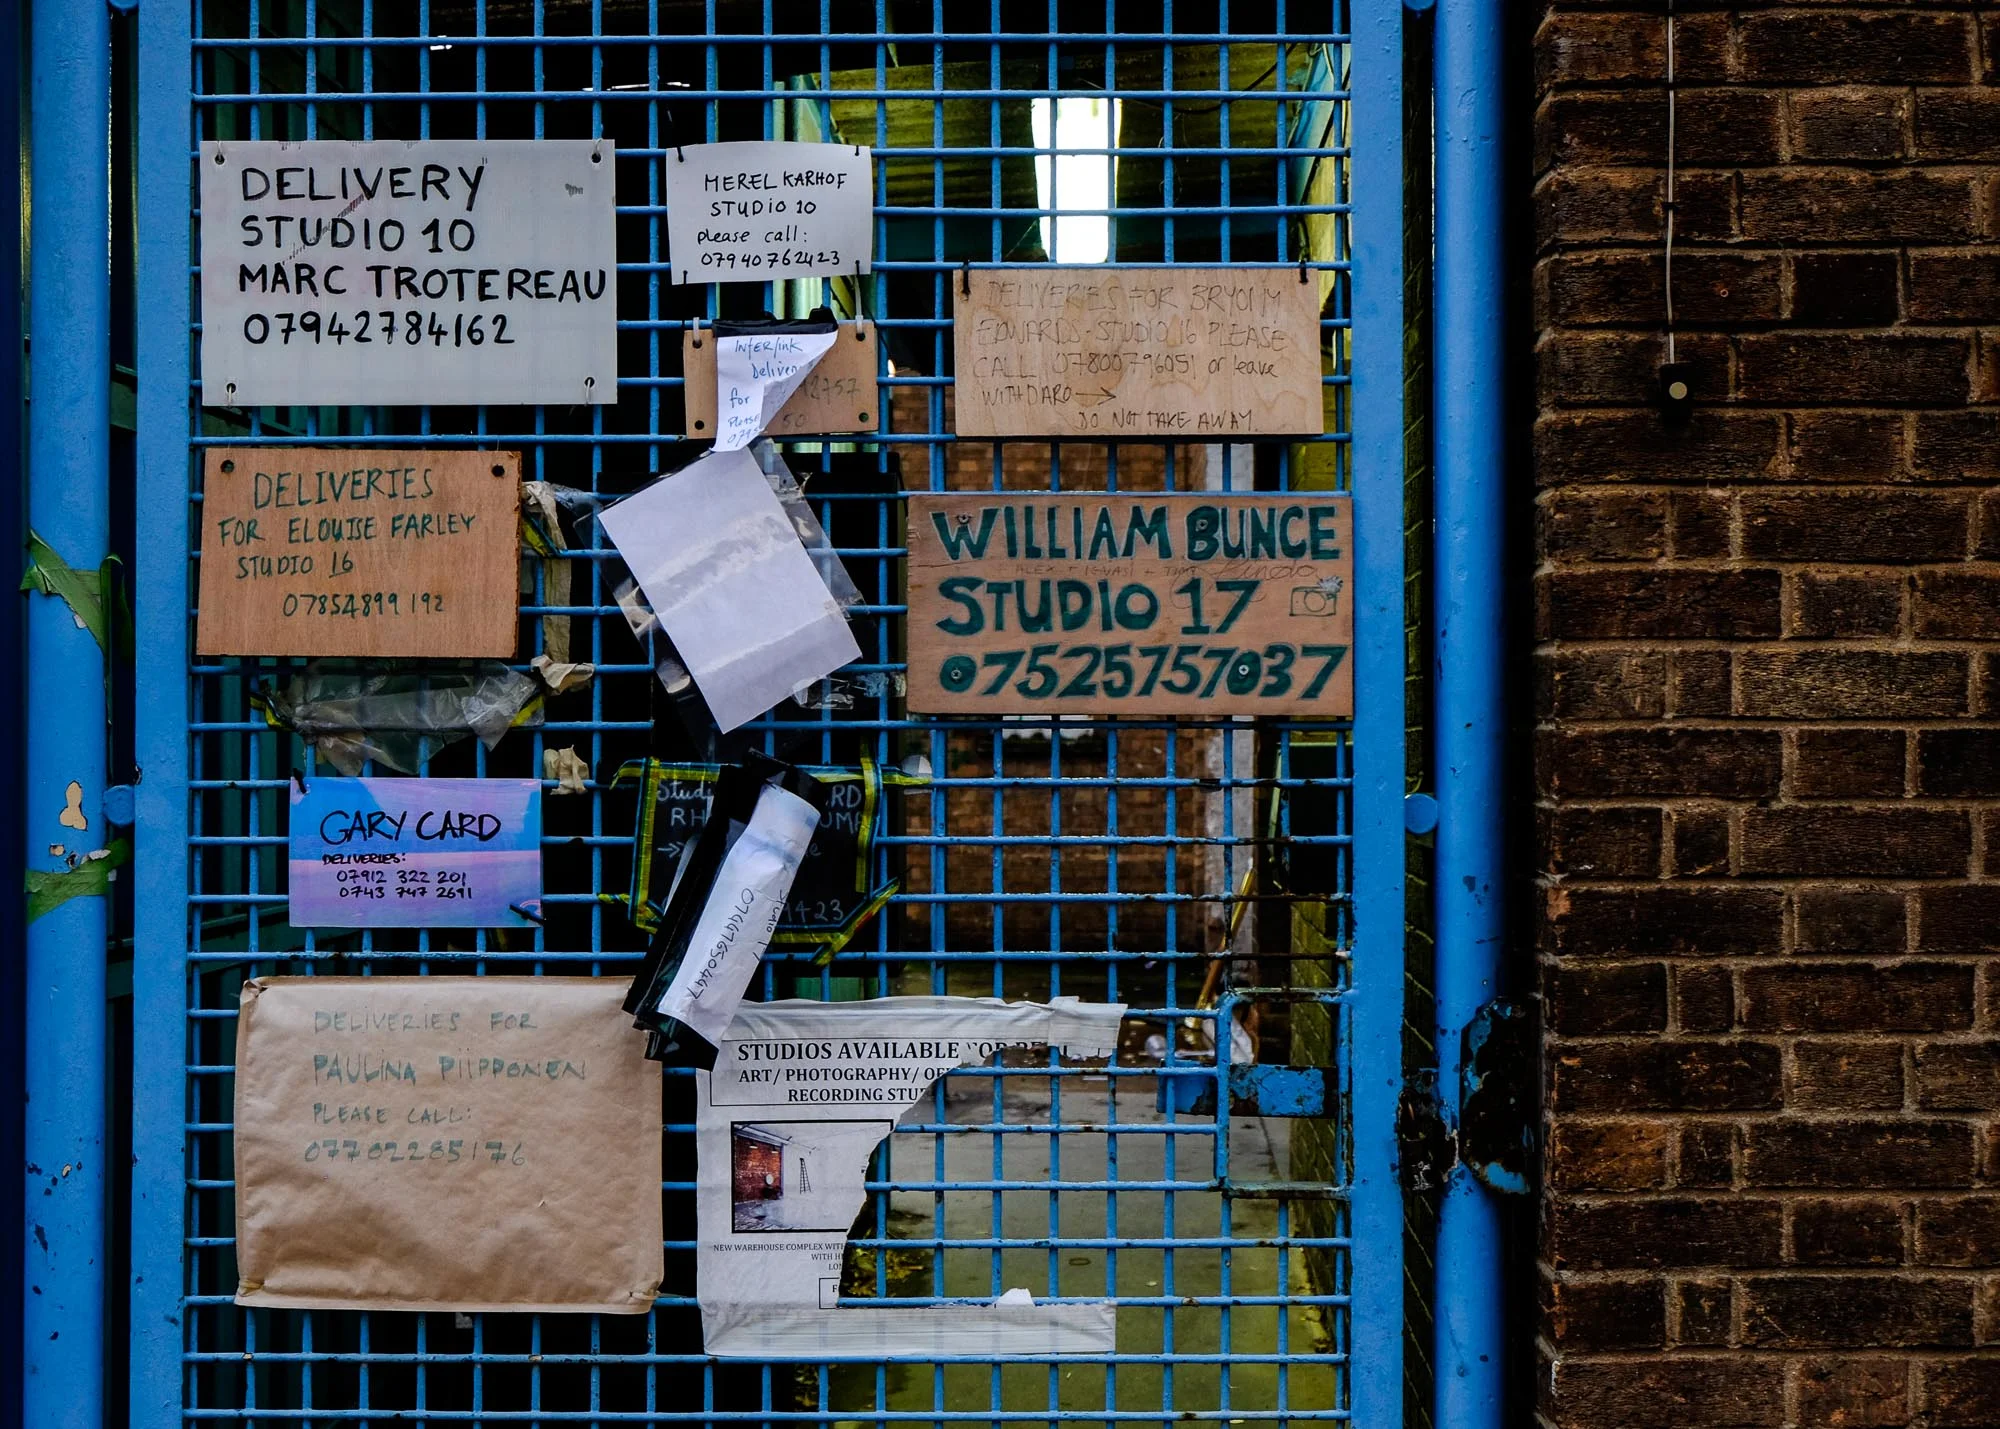 DELIVERY
STUDIO 10
MARC TROTEREAU
07942784162
MEREL KARHOF
STUDIO 10
please call:
07940762423
INTERlink
Deliver
for
Please
50
DELIVERIES FOR BRYONY
EDWARDS-STUDIO 16 PLEASE
CALL 07800796051 or leave
WITH DARO →
DO NOT TAKE AWAY.
DELIVERIES
FOR ELOUISE FARLEY
STUDIO 16
07854899192
WILLIAM BUNCE
ALEX + IGNASI +
STUDIO 17
07525757037
GARY CARD
DELIVERIES:
07912 322 201
0743 747 2691
Studi RD
RH UMA
→
423
Studio 17
07447650447
DELIVERIES FOR
PAULINA PIIPPONEN
PLEASE CALL:
07702285176
STUDIOS AVAILABLE FOR RE
ART/ PHOTOGRAPHY/ OF
RECORDING STU
NEW WAREHOUSE COMPLEX WITH
WITH H
LO
F